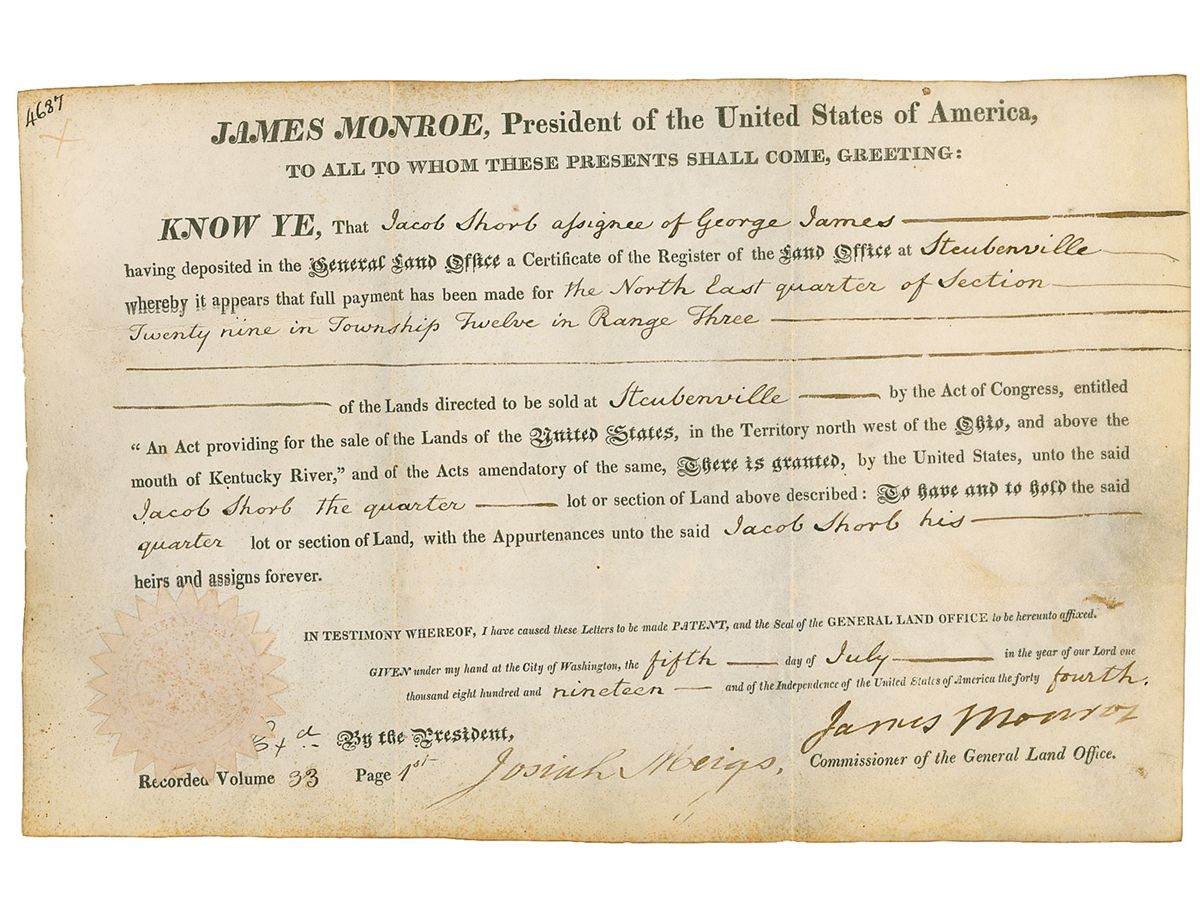 4687
JAMES MONROE, President of the United States of America,
TO ALL TO WHOM THESE PRESENTS SHALL COME, GREETING:
KNOW YE, That Jacob Shorb assignee of George James
having deposited in the General Land Office a Certificate of the Register of the Land Office at Steubenville
whereby it appears that full payment has been made for the North East quarter of Section
Twenty nine in Township Twelve in Range Three
of the Lands directed to be sold at Steubenville by the Act of Congress, entitled
“ An Act providing for the sale of the Lands of the United States, in the Territory north west of the Ohio, and above the
mouth of Kentucky River,” and of the Acts amendatory of the same, There is granted, by the United States, unto the said
Jacob Shorb the quarter lot or section of Land above described: To have and to hold the said
quarter lot or section of Land, with the Appurtenances unto the said Jacob Shorb his
heirs and assigns forever.
IN TESTIMONY WHEREOF, I have caused these Letters to be made PATENT, and the Seal of the GENERAL LAND OFFICE to be hereunto affixed.
GIVEN under my hand at the City of Washington, the fifth day of July in the year of our Lord one
thousand eight hundred and nineteen and of the Independence of the United States of America the forty fourth.
James Monroe
By the President,
Josiah Meigs, Commissioner of the General Land Office.
Recorded Volume 33 Page 1st